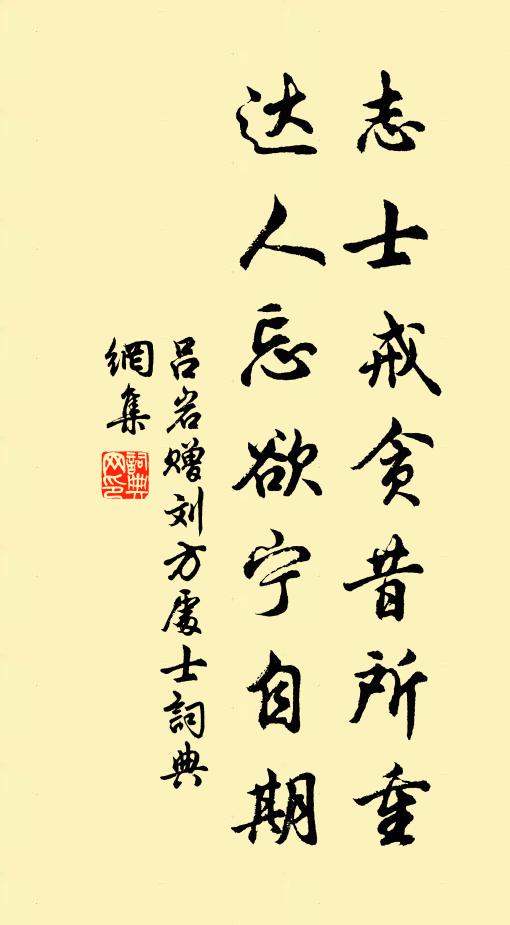 志士戒贪昔所重
达人忘欲宁自期
吕岩赠刘方處士詞典
網集
詞典网印